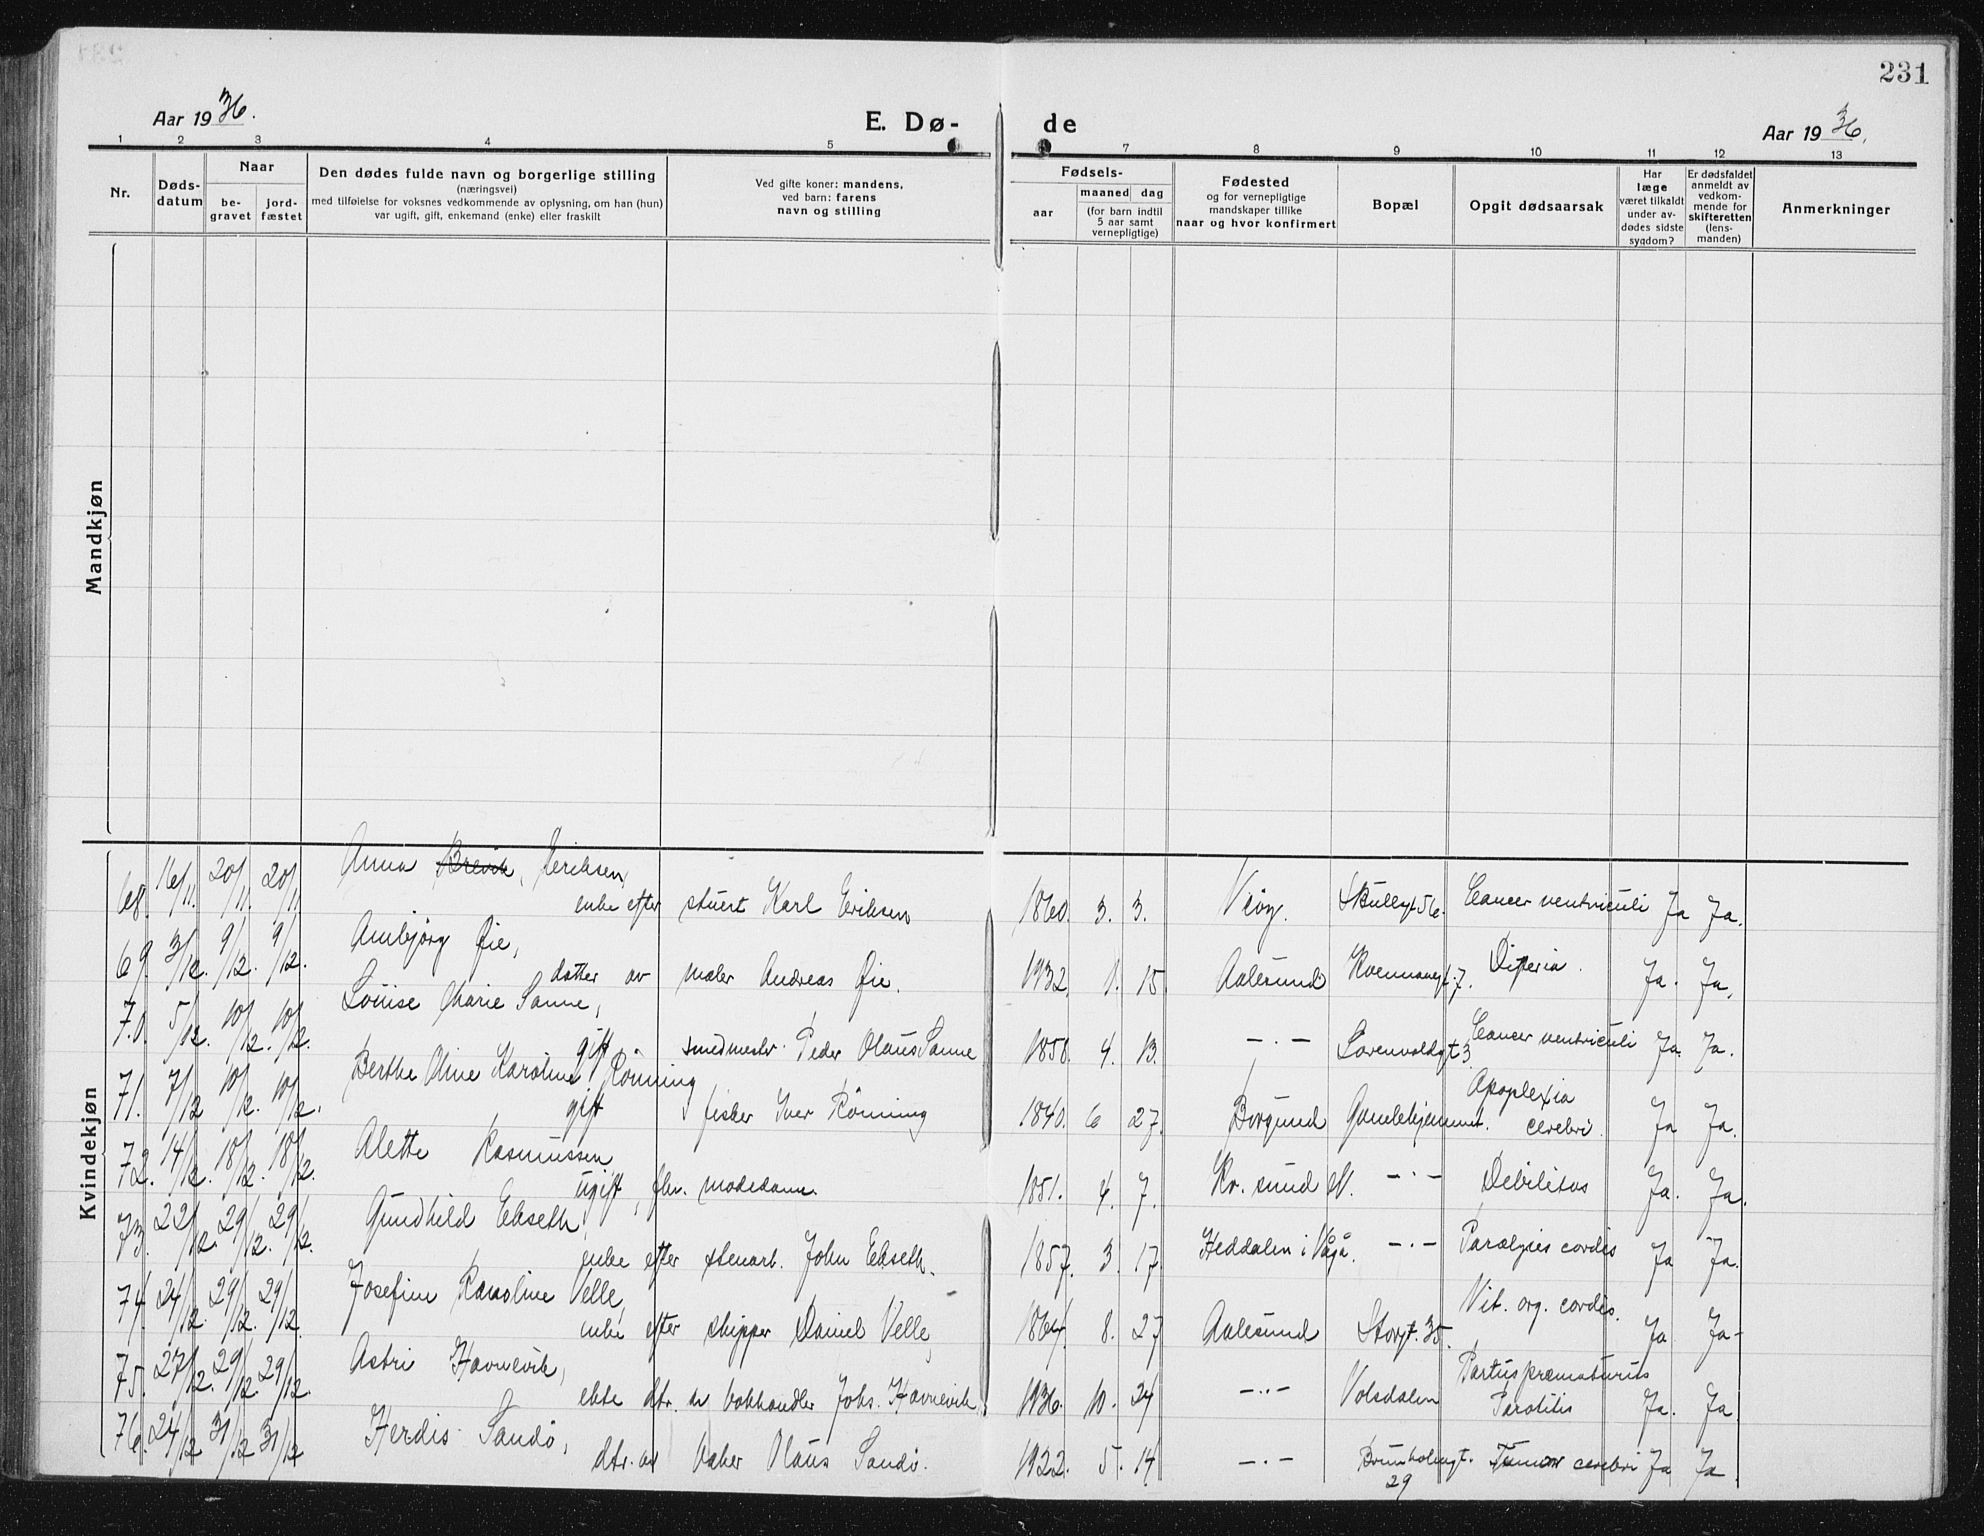 231
Aar 1936.
E. Dø-
de
Aar 1936.
1 2 3 4 5 7 8 9 10 11 12 13
Nr.
Døds-
datum
Naar
be-
gravet
jord-
fæstet
Den dødes fulde navn og borgerlige stilling
(næringsvei)
med tilføielse for voksnes vedkommende av oplysning, om han (hun)
var ugift, gift, enkemand (enke) eller fraskilt
Ved gifte koner: mandens,
ved barn: farens
navn og stilling
Fødsels-
aar
maaned dag
(for barn indtil
5 aar samt
vernepligtige)
Fødested
og for vernepligtige
mandskaper tillike
naar og hvor konfirmert
Bopæl
Opgit dødsaarsak
Har
læge
været tilkaldt
under av-
dødes sidste
sygdom?
Er dødsfaldet
anmeldt av
vedkom-
mende for
skifteretten
(lens-
manden)
Anmerkninger
Mandkjøn
Kvindekjøn
68. 16/11. 20/11. 20/11 Anna Brevik, Eriksen,
enke efter stuert Karl Eriksen 1860. 3. 3. Veøy. Skullegt 56. Cancer ventriculi Ja Ja.
69. 3/12. 9/12. 9/12. Annbjørg Øie,
datter av maler Andreas Øie. 1932. 1. 15. Aalesund 7. Difteria. Ja. Ja.
70. 5/12. 10/12. 10/12. Louise Marie Sanne,
gift smedmester Peder Olaus Sanne 1858. 4. 13. —·— Sorenvoldgt 3 Cancer ventriculi Ja. Ja.
71. 7/12 10/12. 10/12. Berthe Oline Karoline Rönning
gift fisker Iver Rönning 1840. 6 27. Borgund Gamlehjemmet. Apoplexia
cerebri. Ja Ja.
72. 14/12. 18/12. 18/12. Alette Rasmussen
ugift, fhv. modedame. 1851. 4. 7. Kr. sund N. —·— Debilitas Ja. Ja.
73. 22/12. 29/12. 29/12. Gundhild Ekseth,
enke efter stenarb. John Ekseth. 1857. 3. 17. Heddalen i Vågå. —·— Paralysies cordis Ja Ja.
74. 24/12. 29/12. 29/12. Josefine Karoline Velle,
enke efter skipper Daniel Velle, 1864. 8. 27 Aalesund Storgt. 35. Vit. org. cordis. Ja Ja-
75. 27/12. 29/12. 29/12. Astri Havnevik,
ekte dtr. av bokhandler Johs. Havnevik. 1936. 10. 24 —·— Volsdalen Partus præmaturus
Parotitis Ja. Ja.
76. 24/12 31/12 31/12 Herdis Sandö,
dtr. av baker Olaus Sandö. 1922. 5. 14 —·— Brunholmgt.
29 Tumor cerebri Ja Ja.